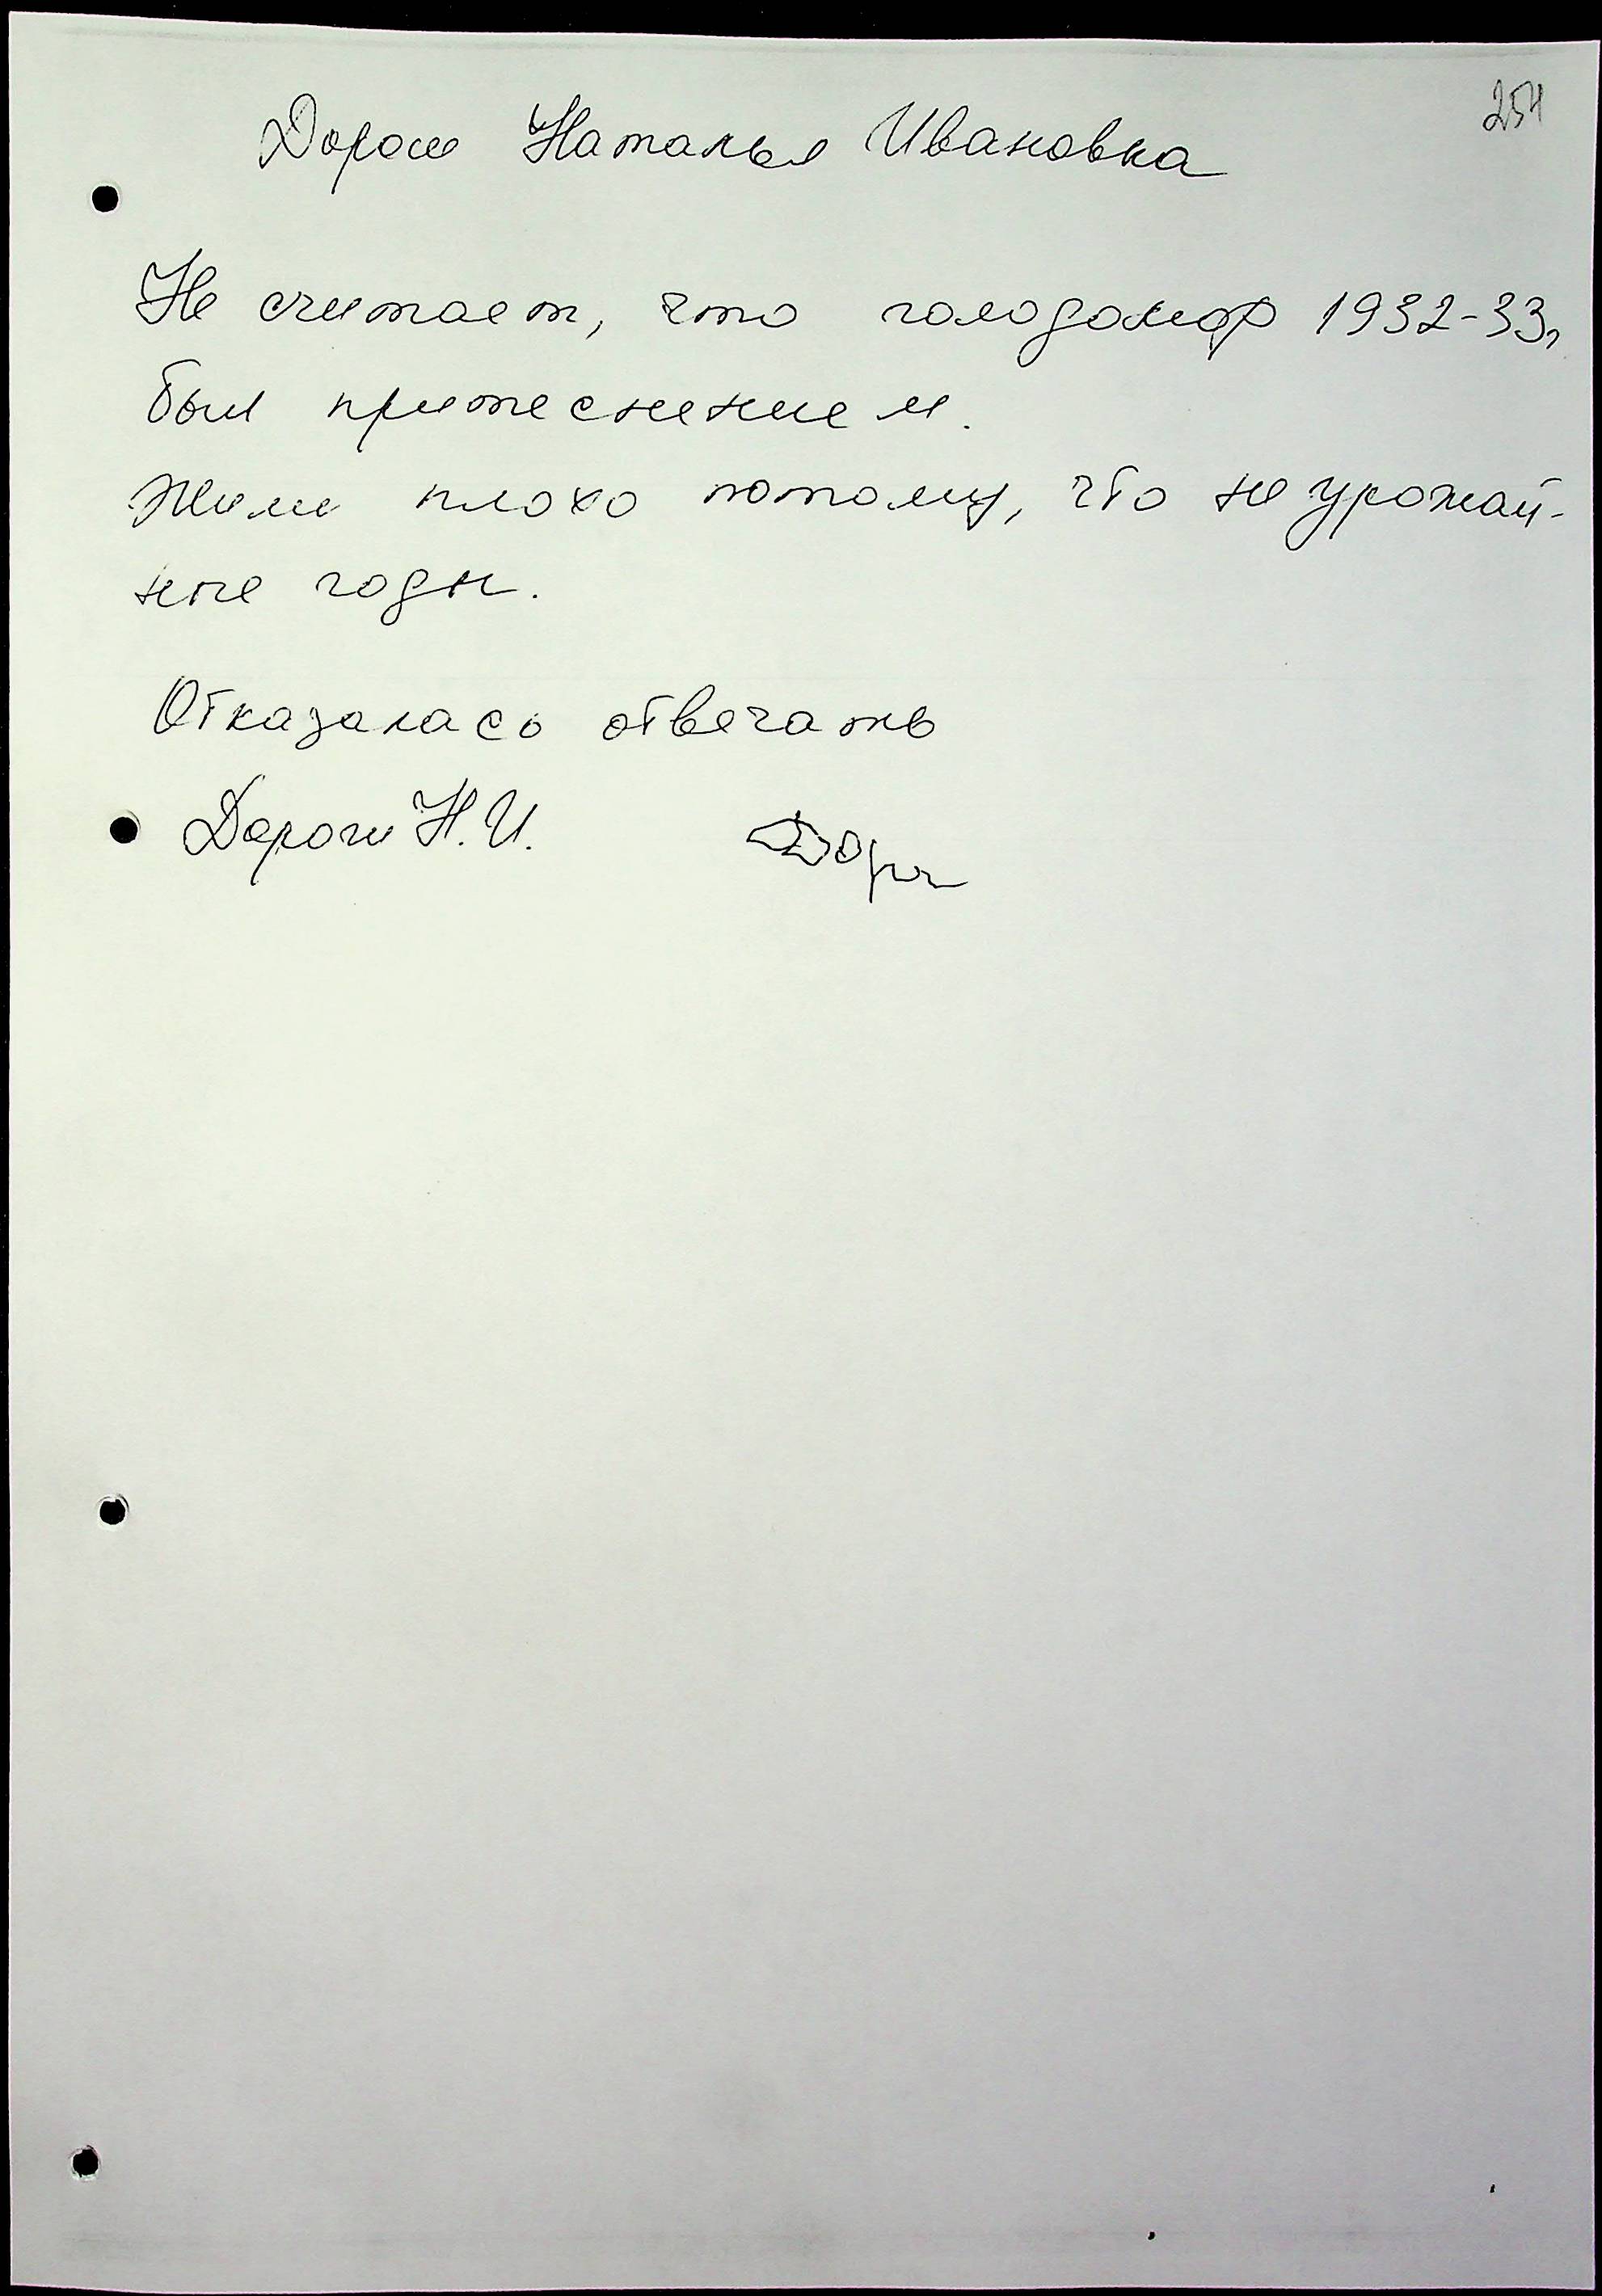 254
Дорош Наталья Ивановна
Не считает, что голодомор 1932-33г
был притеснением.
Жили плохо потому, что не урожай-
ные годы.
Отказалась отвечать
Дорош Н.И.